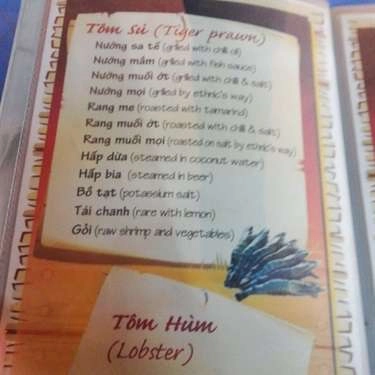 Tôm Sú (Tiger prawn)
Nướng sa tế (grilled with chili oil)
Nướng mắm (grilled with fish sauce)
Nướng muối ớt (grilled with chili & salt)
Nướng mọi (grilled by ethnic's way)
Rang me (roasted with tamarind)
Rang muối ớt (roasted with chili & salt)
Rang muối mọi (roasted on salt by ethnic's way)
Hấp dừa (steamed in coconut water)
Hấp bia (steamed in beer)
Bồ tạt (potassium salt)
Tái chanh (rare with lemon)
Gỏi (raw shrimp and vegetables)
Tôm Hùm
(Lobster)